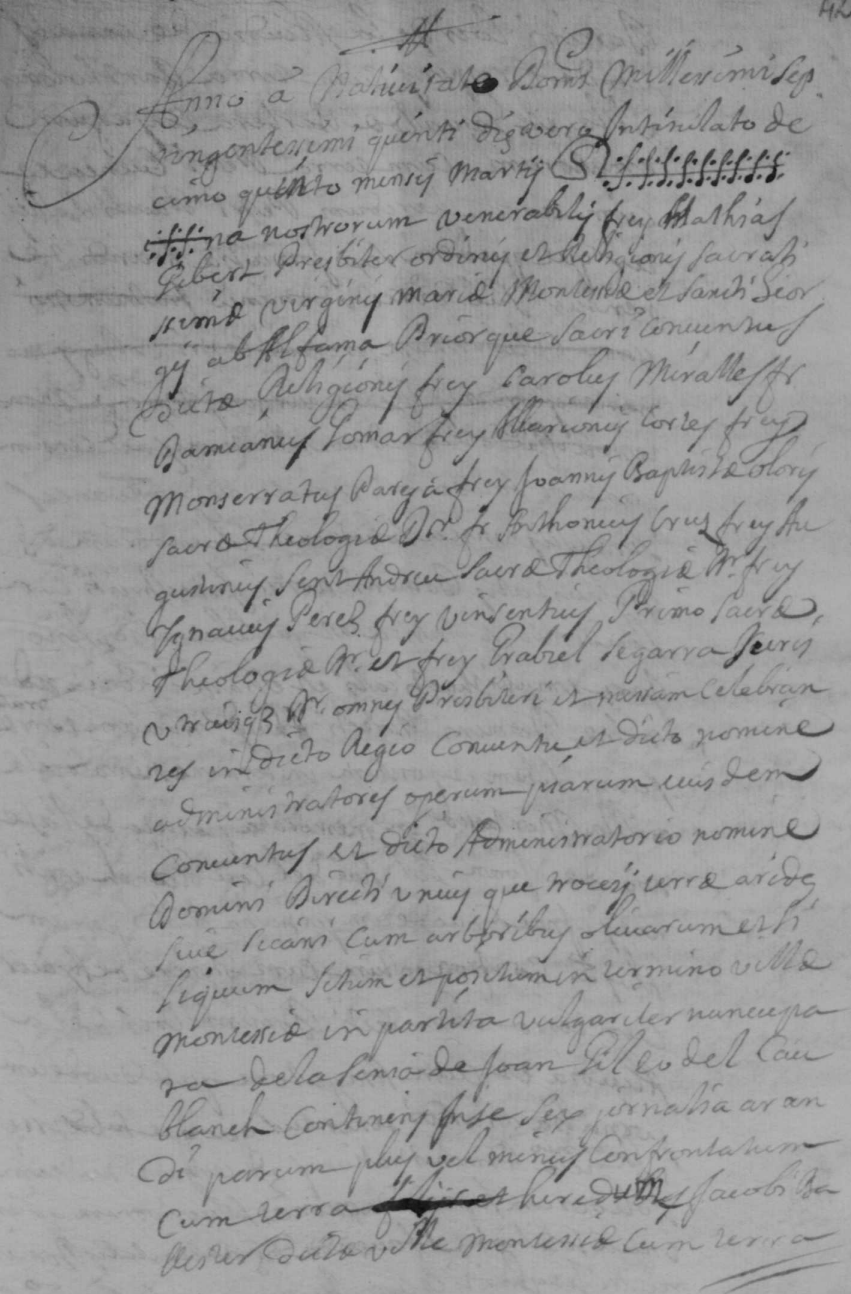 42
Anno a Nativitate Domi Millesimi sep
tingentessimi quinti die vero Intitulato de
cimo quinto mensis Martij
na nostrorum venerabilis frey Mathias
Gibert Presbiter ordinis et Religionis sacrati
ssimæ virginis mariæ Montessiæ et santi Geor
gij ab Alfama Priorque sacri Conventus
dictæ Religionis frey Carolus Miralles fr
Damianus Tomas frey Illarionis Cortes frey
Monserratus Pareja frey Joannis Baptistæ oloris
sacræ Theologiæ Dr. fr Anthonius Cruz frey Au
gustinus Sent Andreu Sacræ Theologiæ Dr. frey
Ignacius Perez frey vinsentius Primo sacræ
Theologiæ Dr. et frey Grabiel Segarra Juris
utriusq3 Dr. omnes Presbiteri et missam Celebran
tes in dicto Regio Conventu et dicto nomine
administratores operum piarum eiusdem
Conventus et dicto Administratorio nomine
Domini Directi unius que trocei terræ aridæ
sive secani Cum arboribus olivarum et fi
situm et positum in termino villæ
Montessiæ in partita vulgariter nuncupa
ta de la Senia de Joan Gil eo del Cau
blanch Continens in se sex jornalia aran
di parum plus vel minus Confrontatum
Cum terra heredum Jacobi Ba
llester dictæ villæ Montessiæ Cum terra